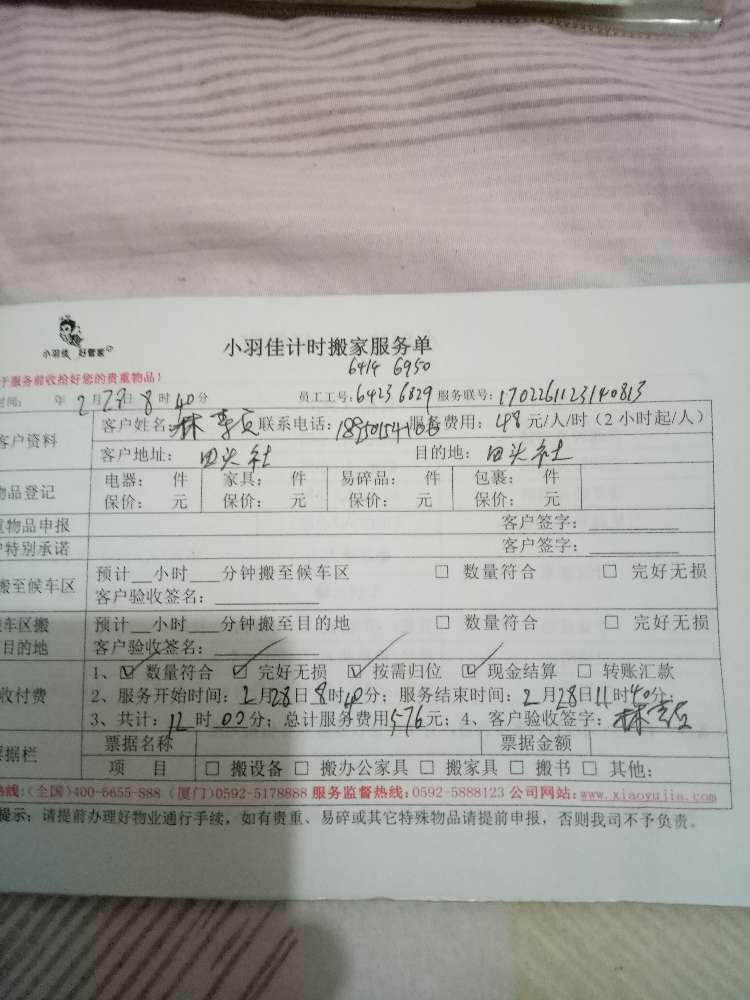 小羽佳 好管家
小羽佳计时搬家服务单
6414 6950
于服务前收拾好您的贵重物品!
时间: 年2月29日8时40分 员工工号:6423 6829 服务联号:1702261123140813
客户资料 客户姓名:林 联系电话: 服务费用:48元/人/时(2小时起/人)
客户地址:田头社 目的地:田头社
物品登记 电器: 件 家具: 件 易碎品: 件 包裹: 件
保价: 元 保价: 元 保价: 元 保价: 元
重物品申报 客户签字:
户特别承诺 客户签字:
搬至候车区 预计__小时___分钟搬至候车区 □ 数量符合 □ 完好无损
客户验收签名:
车区搬 预计__小时___分钟搬至目的地 □ 数量符合 □ 完好无损
目的地 客户验收签名:
1、☑ 数量符合 ☑ 完好无损 ☑ 按需归位 ☑ 现金结算 □ 转账汇款
收付费 2、服务开始时间:2月28日8时40分;服务结束时间:2月28日11时40分;
3、共计:12时00分;总计服务费用576元;4、客户验收签字:林
票据栏 票据名称 票据金额
项 目 □ 搬设备 □ 搬办公家具 □ 搬家具 □ 搬书 □ 其他:
热线:(全国)400-6655-888 (厦门)0592-5178888 服务监督热线:0592-5888123 公司网站:www.xiaoyujia.com
提示:请提前办理好物业通行手续,如有贵重、易碎或其它特殊物品请提前申报,否则我司不予负责。